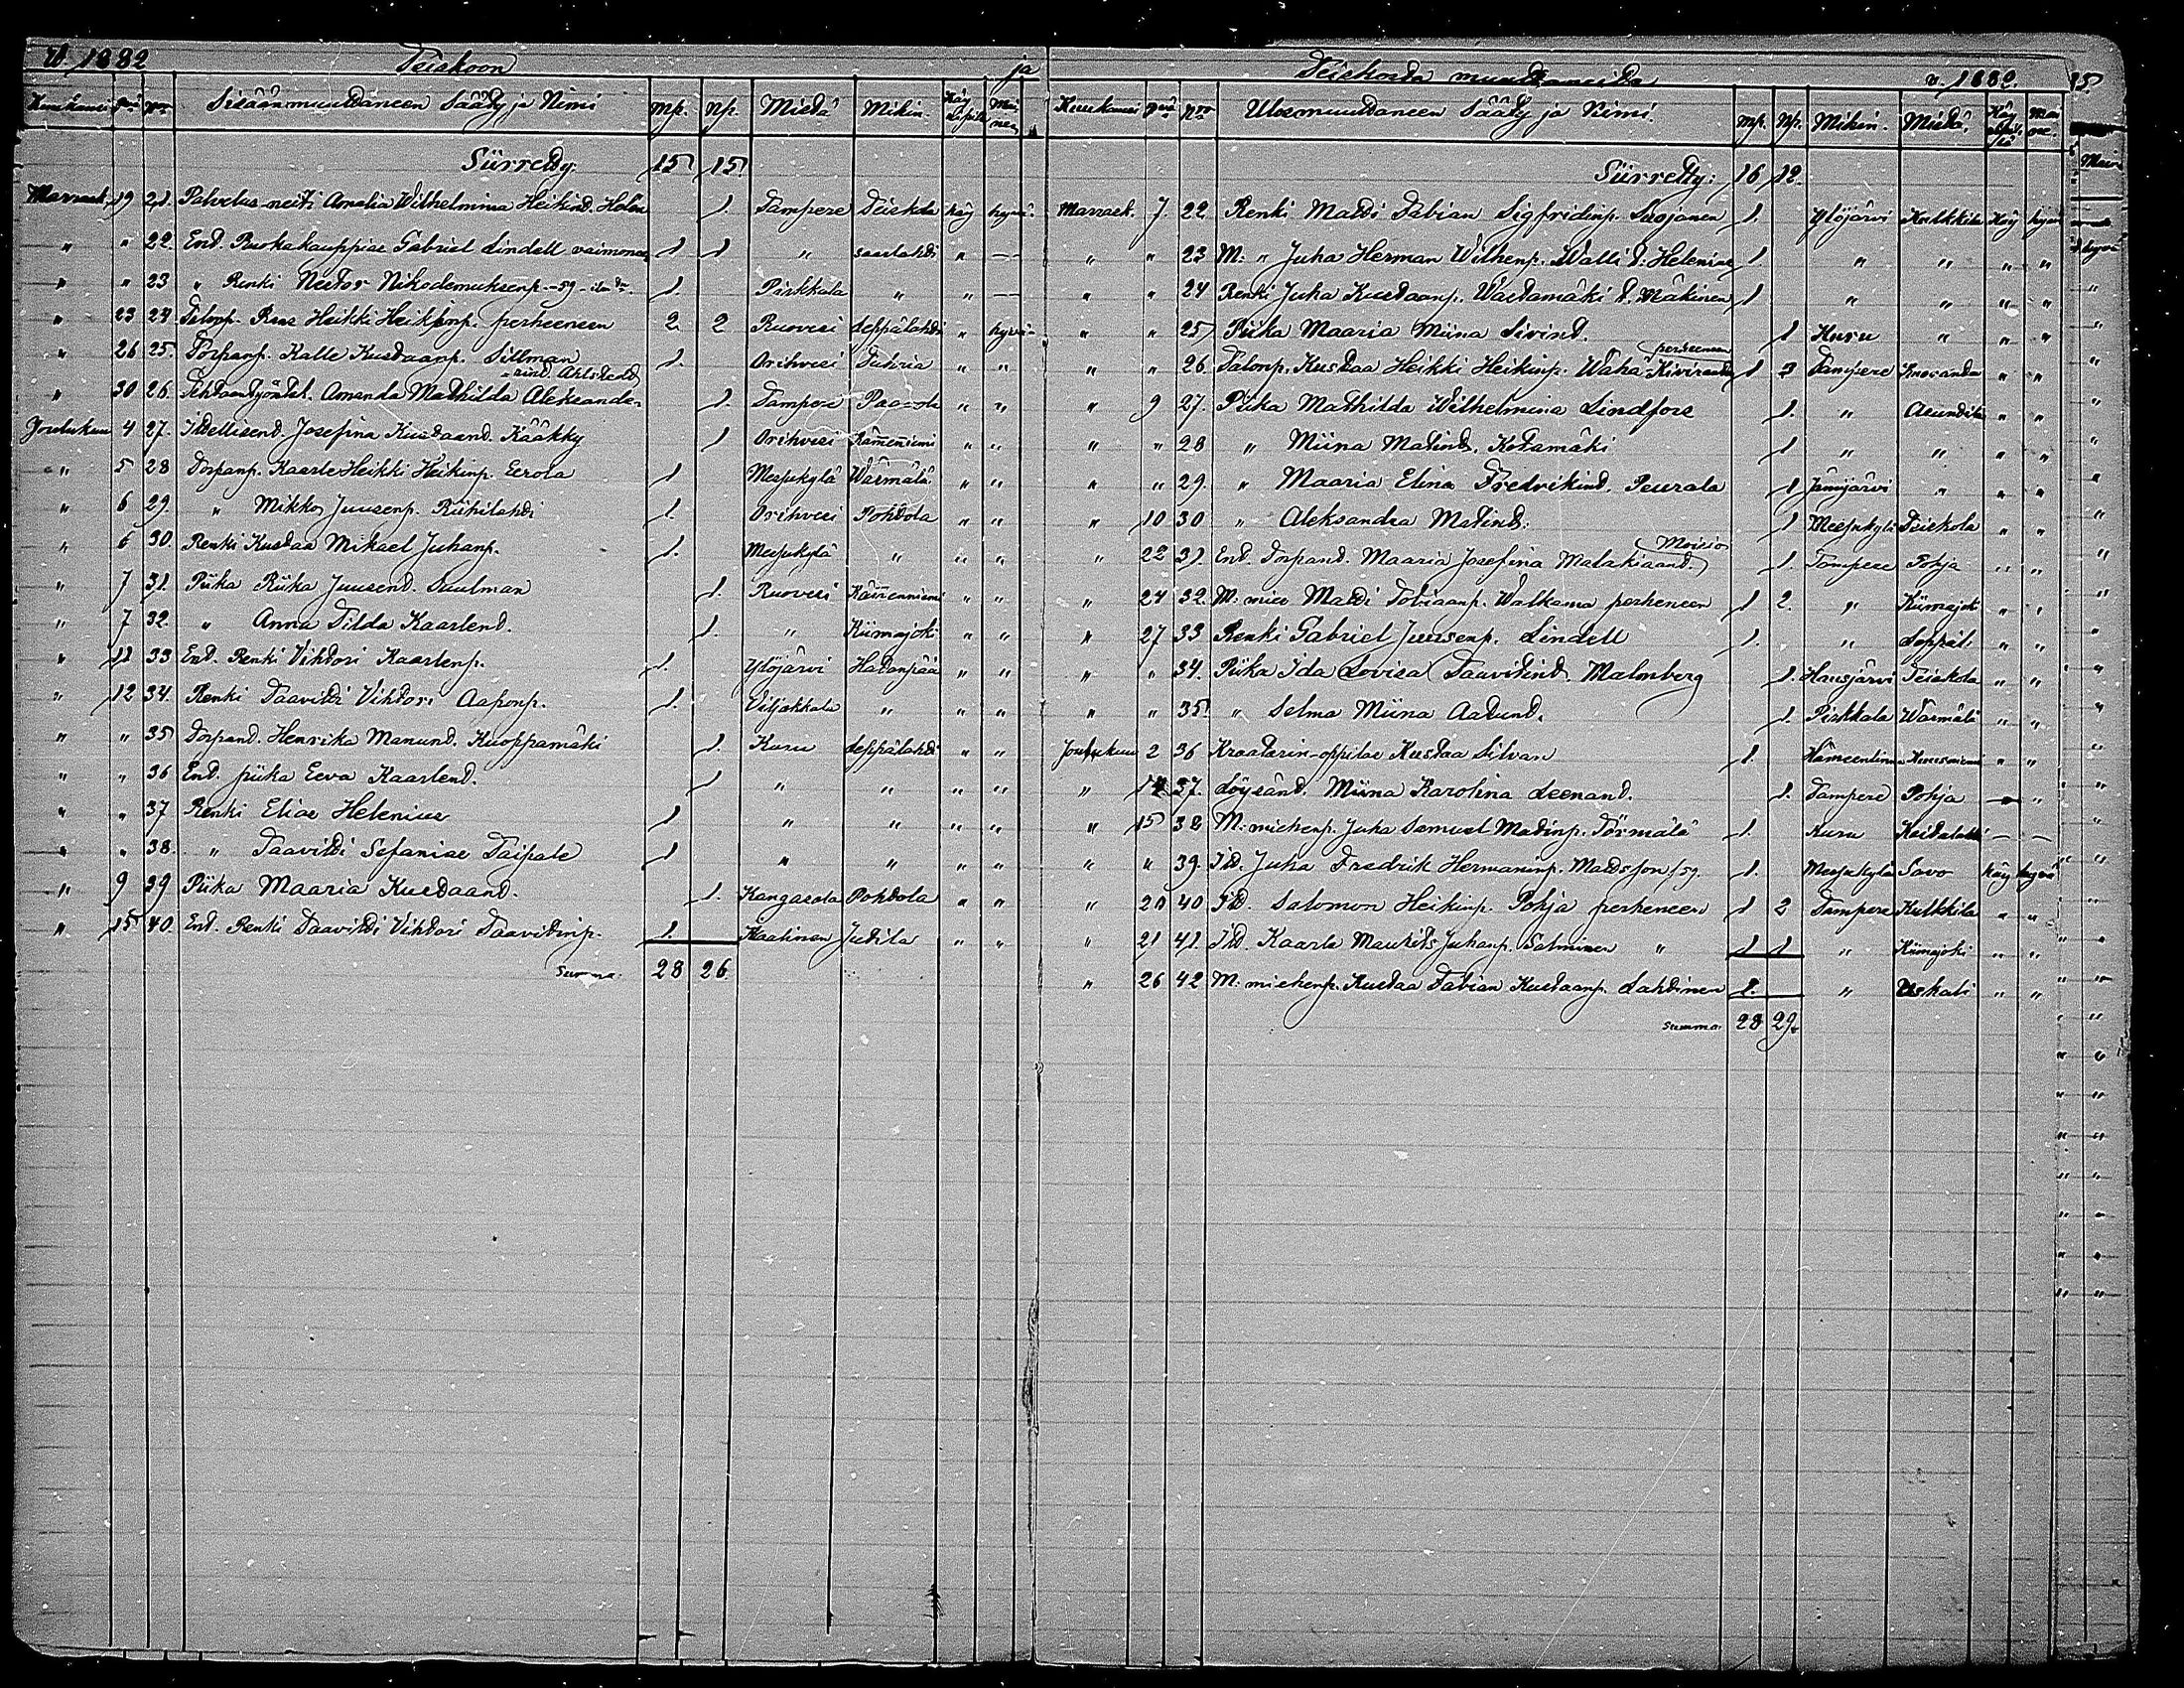 V. 1882 Teiskoon ja
Kuukausi pvä Nro Sisäänmuuttaneen Sääty ja Nimi mp. np. Mistä Mihin Käy Maine
Siirretty: 15 15
Marrask. 19 21. Palvelus-neiti Amalia Wilhelmina Heikint. Holm 1. Tampere Teiskola käy hyvä
" " 22. Ent. Ruokakauppias Gabriel Lindell vaimoneen 1 1 " saarlahti " —
" " 23 " Renki Nestor Nikodemuksenp. 1. Pirkkala " " —
" 23 24. Talonp. Heikki Heikinp. perheeneen 2. 2 Ruovesi Leppälahti " hyvä
" 26 25. Torpanp. Kalle Kustaanp. Sillman 1. Orihvesi " "
" 30 26. Tehtaantyöntek. Amanda Mathilda Aleksanderint. Ahlstedt 1. Tampere " "
Joulukuu 4 27. Itsellisent. Josefina Kustaant. Kääkky 1 Orihvesi Kämenniemi " "
" 5 28 Torpanp. Kaarle Heikki Heikinp. Eerola 1 Messukylä Wärmälä " "
" 6 29. " Mikko Juusenp. Riihilahti 1. Orihvesi Pohtola " "
" 6 30. Renki Kustaa Mikael Juhanp. 1. Messukylä " " "
" 7 31. Piika Riika Juusent. Tuulman 1. Ruovesi Kämmenniemi " "
" 7 32. " Anna Tilda Kaarlent. 1. " Kiimajoki " "
" 11 33 Ent. Renki Vihtori Kaarlenp. 1. Ylöjärvi Hatanpää " "
" 12 34. Renki Taavitti Vihtori Aaponp. 1. Viljakkala " " "
" " 35 Torpant. Henrika Manunt. Kuoppamäki 1. Kuru Leppälahti " "
" " 36 Ent. piika Eeva Kaarlent. 1 " " " "
" " 37 Renki Elias Helenius 1 " " " "
" " 38. " Taavitti Sefanias Taipale 1 " " " "
" 9 39 Piika Maaria Kustaant. 1. Kangasala Pohtola " "
" 15 40. Ent. Renki Taavitti Vihtori Taavitinp. 1. Ikaalinen Jutila " "
Summa: 28 26
Teiskosta muuttaneita v. 1882. 15
Kuukausi pvä Nro Ulosmuuttaneen Sääty ja Nimi mp. np. Mihin. Mistä. Käy Maine.
Siirretty: 16 12.
Marrask. 7. 22 Renki Matti Fabian Sigfridinp. 1. Ylöjärvi Kulkkila käy hyvä
" " 23 M. " Juha Herman Wilhenp. Walli t. Helenius 1. " " " "
" " 24 Renki Juha Kustaanp. Wastamäki t. Mäkinen 1 " " " "
" " 25 Piika Maaria Miina 1 Kuru " " "
" " 26 Talonp. Kustaa Heikki Heikinp. Waha-Kiviranta perheeneen 1 3 Tampere " "
" 9 27. Piika Mathilda Wilhelmina Lindfors 1. " Asuntila " "
" " 28 " Miina Matint. Kotamäki 1 " " " "
" " 29. " Maaria Elina Fredrikint. Peurala 1 Jämijärvi " " "
" 10 30 " Aleksandra Matint. 1 Messukylä Teiskola " "
" 22 31. Ent. Torpant. Maaria Josefina Malakiaant. Moisio 1. Tampere Pohja " "
" 24 32. M: mies Matti Tobiaanp. Walkama perheneen 1 2. " Kiimajok " "
" 27 33 Renki Gabriel Juusenp. Lindell 1. " Leppäl. " "
" " 34. Piika Ida Lovisa Taavitint. Malmberg 1. Hausjärvi Teiskola " "
" " 35. " Selma Miina Aatunt. 1. Pirkkala Wärmälä " "
Joulukuu 2 36 Kraatarin-oppilas Kustaa Silvan 1. Hämeenlinna " "
" 14 37. Löysänt. Miina Karolina Leenant. 1. Tampere Pohja — "
" 15 38 M: miehenp. Juha Samuel Matinp. Törmälä 1. Kuru — —
" " 39. Its. Juha Fredrik Hermaninp. Mattsson 1. Messukylä Savo käy hyvä
" 20 40 Its. Salomon Heikinp. Pohja perheneen 1 2 Tampere Kulkkila " "
" 21 41. Its. Kaarle Maurits Juhanp. Salminen " 1 1 " Kiimajoki " "
" 26 42 M: miehenp. Kustaa Fabian Kustaanp. Lahtinen 1. " Uskali " "
Summa: 28 29.